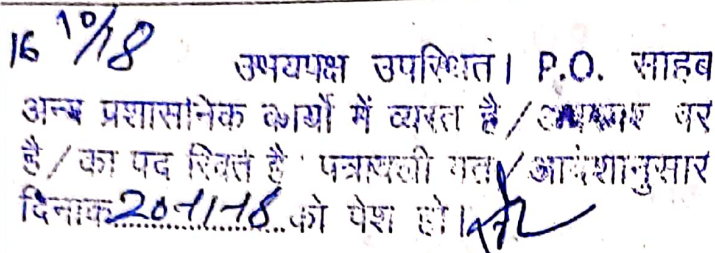 16 10/18 उभयपक्ष उपस्थित। P.O. साहब
अन्य प्रशासनिक कार्यो में व्यस्त है / अवकाश पर
है / का पद रिक्त है। पत्रावली गत / आदेशानुसार
दिनांक 20-11-18 को पेश हो।